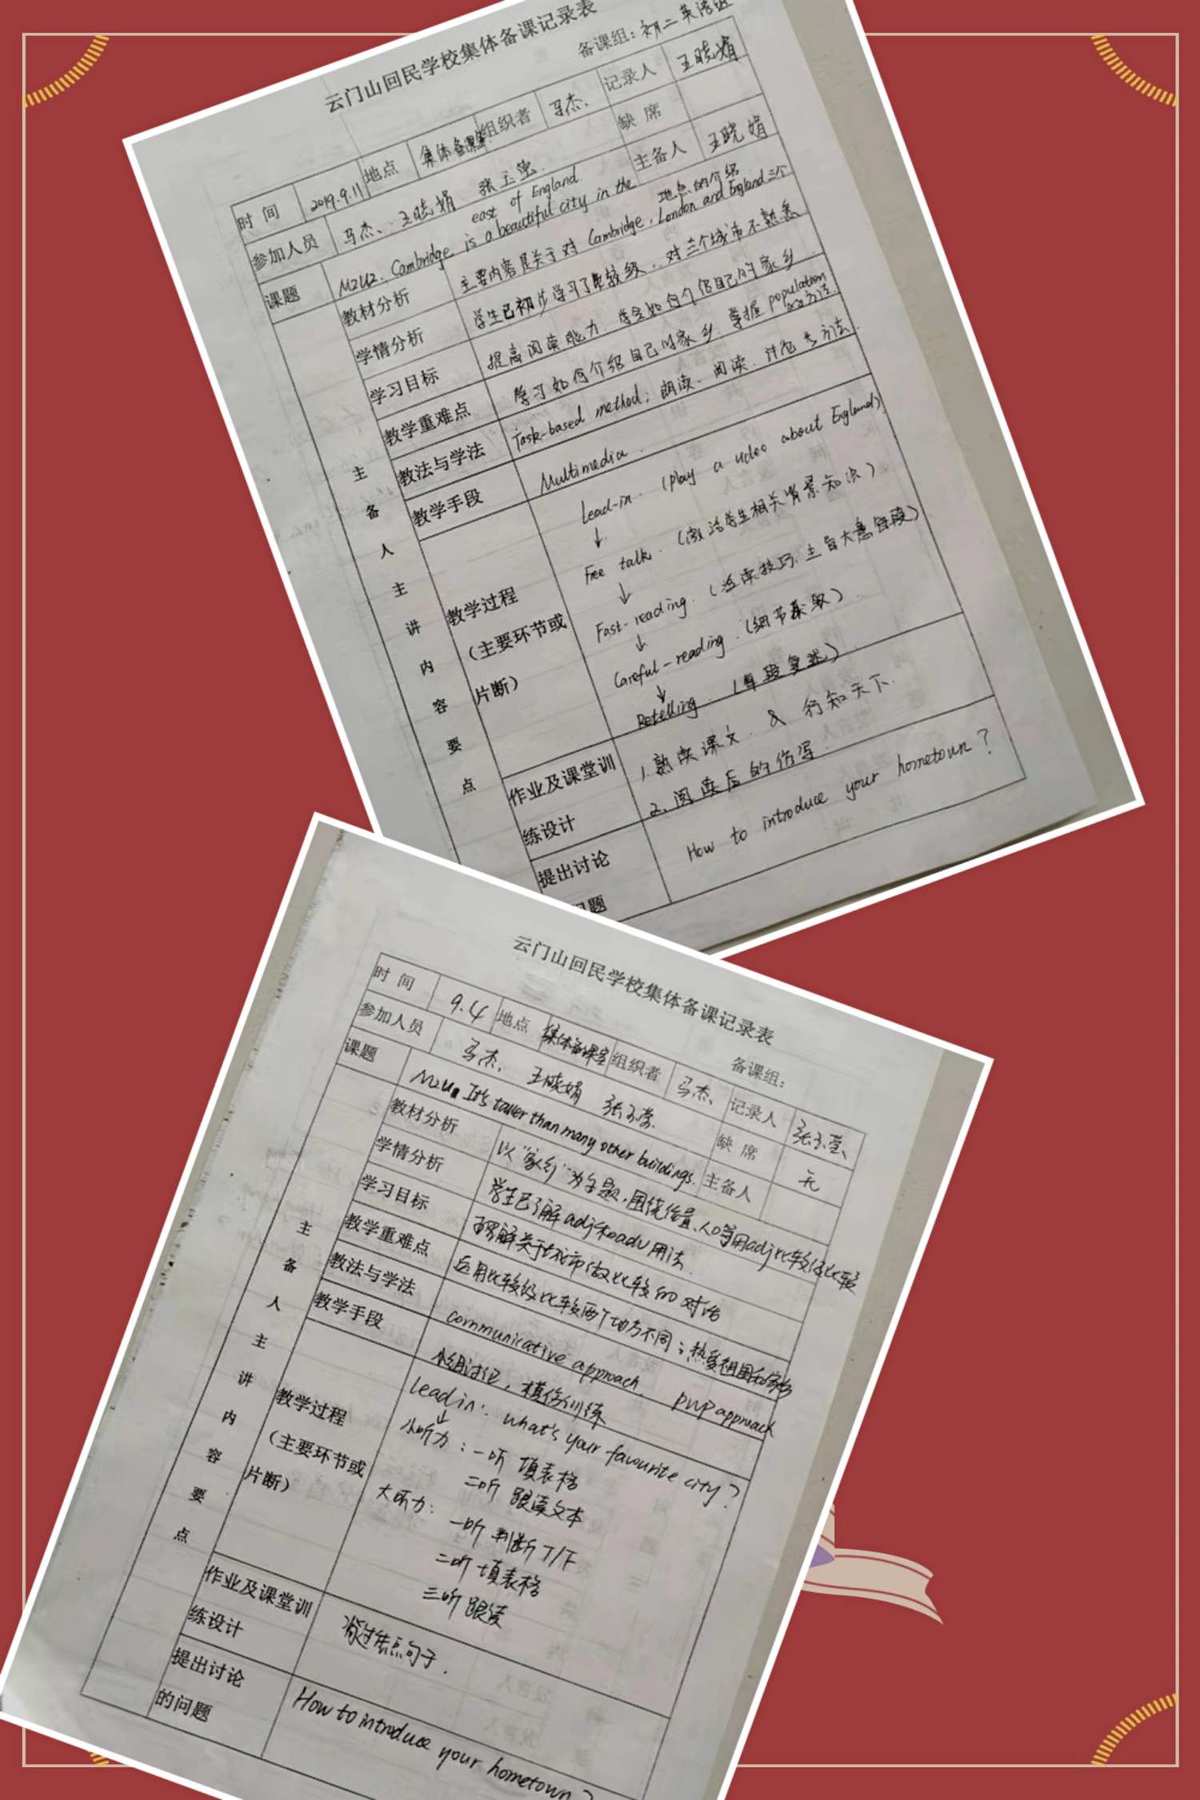 云门山回民学校集体备课记录表
备课组：初二英语组
时间 2019.9.11 地点 集体备课室 组织者 马杰、 记录人 王晓娟
参加人员 马杰、王晓娟 张玉莹 缺席
课题 M2U2. Cambridge is a beautiful city in the east of England 主备人 王晓娟
主备人主讲内容要点
教材分析 主要内容是关于对 Cambridge, London and England 三个地点的介绍
学情分析 学生已初步学习了比较级，对三个城市不熟悉
学习目标 提高阅读能力 学会如何介绍自己的家乡
教学重难点 学习如何介绍自己的家乡 掌握 population 的用法
教法与学法 Task-based method; 朗读、阅读、讨论等方法.
教学手段 Multimedia.
教学过程
（主要环节或
片断）
Lead-in. (play a video about England)
↓
Free talk. (激活学生相关背景知识)
↓
Fast-reading. (阅读技巧，主旨大意段)
↓
Careful-reading. (细节获取)
↓
Retelling. (复述)
作业及课堂训
练设计
1. 熟读课文. & 行知天下.
2. 阅读后的仿写.
提出讨论
问题
How to introduce your hometown?
云门山回民学校集体备课记录表
备课组：
时间 9.4 地点 集体备课室 组织者 马杰、 记录人 张玉莹、
参加人员 马杰、王晓娟 张玉莹. 缺席 无
课题 M2U1 It's taller than many other buildings. 主备人
主备人主讲内容要点
教材分析 以"家乡"为主题，围绕位置、人口等用adj比较级比较
学情分析 学生已了解adj和adv用法.
学习目标 理解关于城市做比较的对话
教学重难点 运用比较级比较两个地方不同；热爱祖国和家乡
教法与学法 communicative approach. PWP approach
教学手段 小组讨论，模仿训练
教学过程
（主要环节或
片断）
Lead in: what's your favourite city?
↓
小听力：一听 填表格
二听 跟读文本
大听力：一听 判断T/F
二听 填表格
三听 跟读
作业及课堂训
练设计
背过焦点句子.
提出讨论
的问题
How to introduce your hometown?